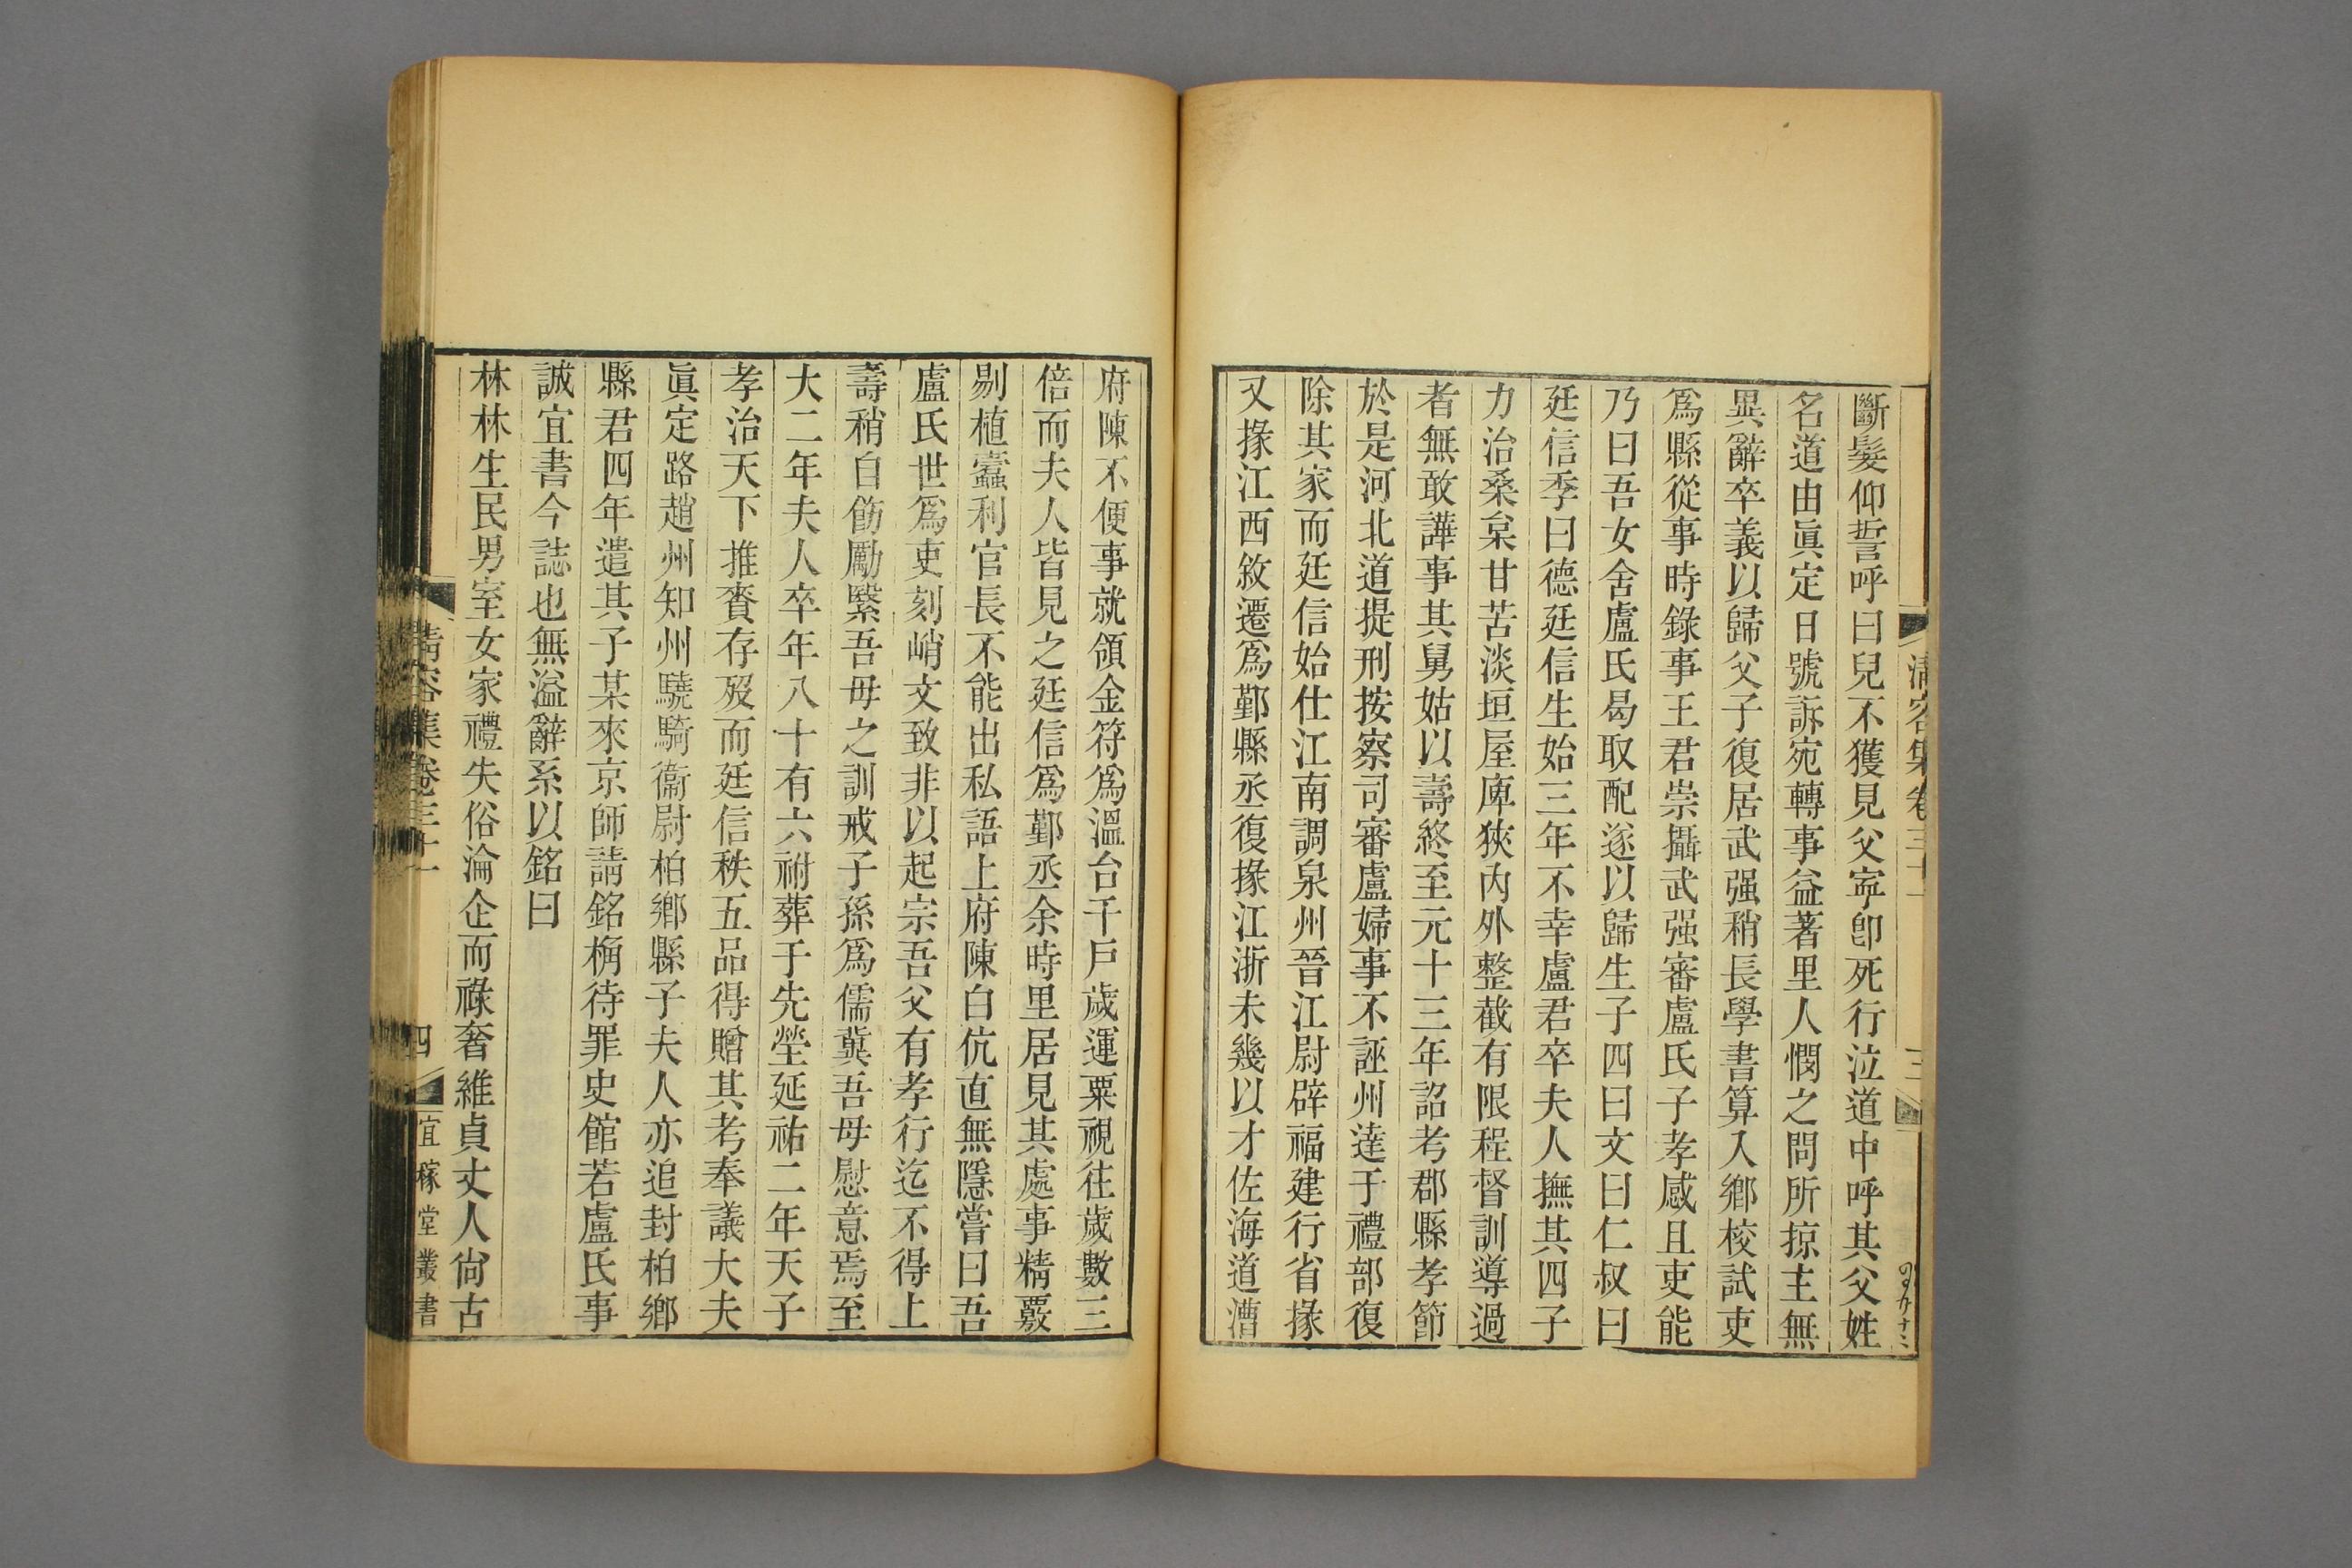 清容集卷三十一
三
斷髮仰誓呼曰兒不獲見父寜卽死行泣道中呼其父姓
名道由眞定日號訴宛轉事益著里人憫之問所掠主無
異辭卒義以歸父子復居武强稍長學書算入鄕校試吏
爲縣從事時錄事王君崇攝武强審盧氏子孝感且吏能
乃曰吾女舍盧氏曷取配遂以歸生子四曰文曰仁叔曰
廷信季曰德廷信生始三年不幸盧君卒夫人撫其四子
力治桑枲甘苦淡垣屋庳狹内外整截有限程督訓導過
者無敢譁事其舅姑以壽終至元十三年詔考郡縣孝節
於是河北道提刑按察司審盧婦事不誣州達于禮部復
除其家而廷信始仕江南調泉州晉江尉辟福建行省掾
又掾江西敘遷爲鄞縣丞復掾江浙未幾以才佐海道漕
府陳不便事就領金符爲溫台千戶歲運粟視往歲數三
倍而夫人皆見之廷信爲鄞丞余時里居見其處事精覈
剔植蠹利官長不能出私語上府陳白伉直無隱嘗曰吾
盧氏世爲吏刻峭文致非以起宗吾父有孝行迄不得上
壽稍自飭勵繄吾母之訓戒子孫爲儒冀吾母慰意焉至
大二年夫人卒年八十有六祔葬于先塋延祐二年天子
孝治天下推賚存歿而廷信秩五品得贈其考奉議大夫
眞定路趙州知州驍騎衞尉柏鄕縣子夫人亦追封柏鄕
縣君四年遣其子某來京師請銘桷待罪史館若盧氏事
誠宜書今誌也無溢辭系以銘曰
林林生民男室女家禮失俗淪企而祿奢維貞丈人尙古
清容集卷三十一
四
宜稼堂叢書